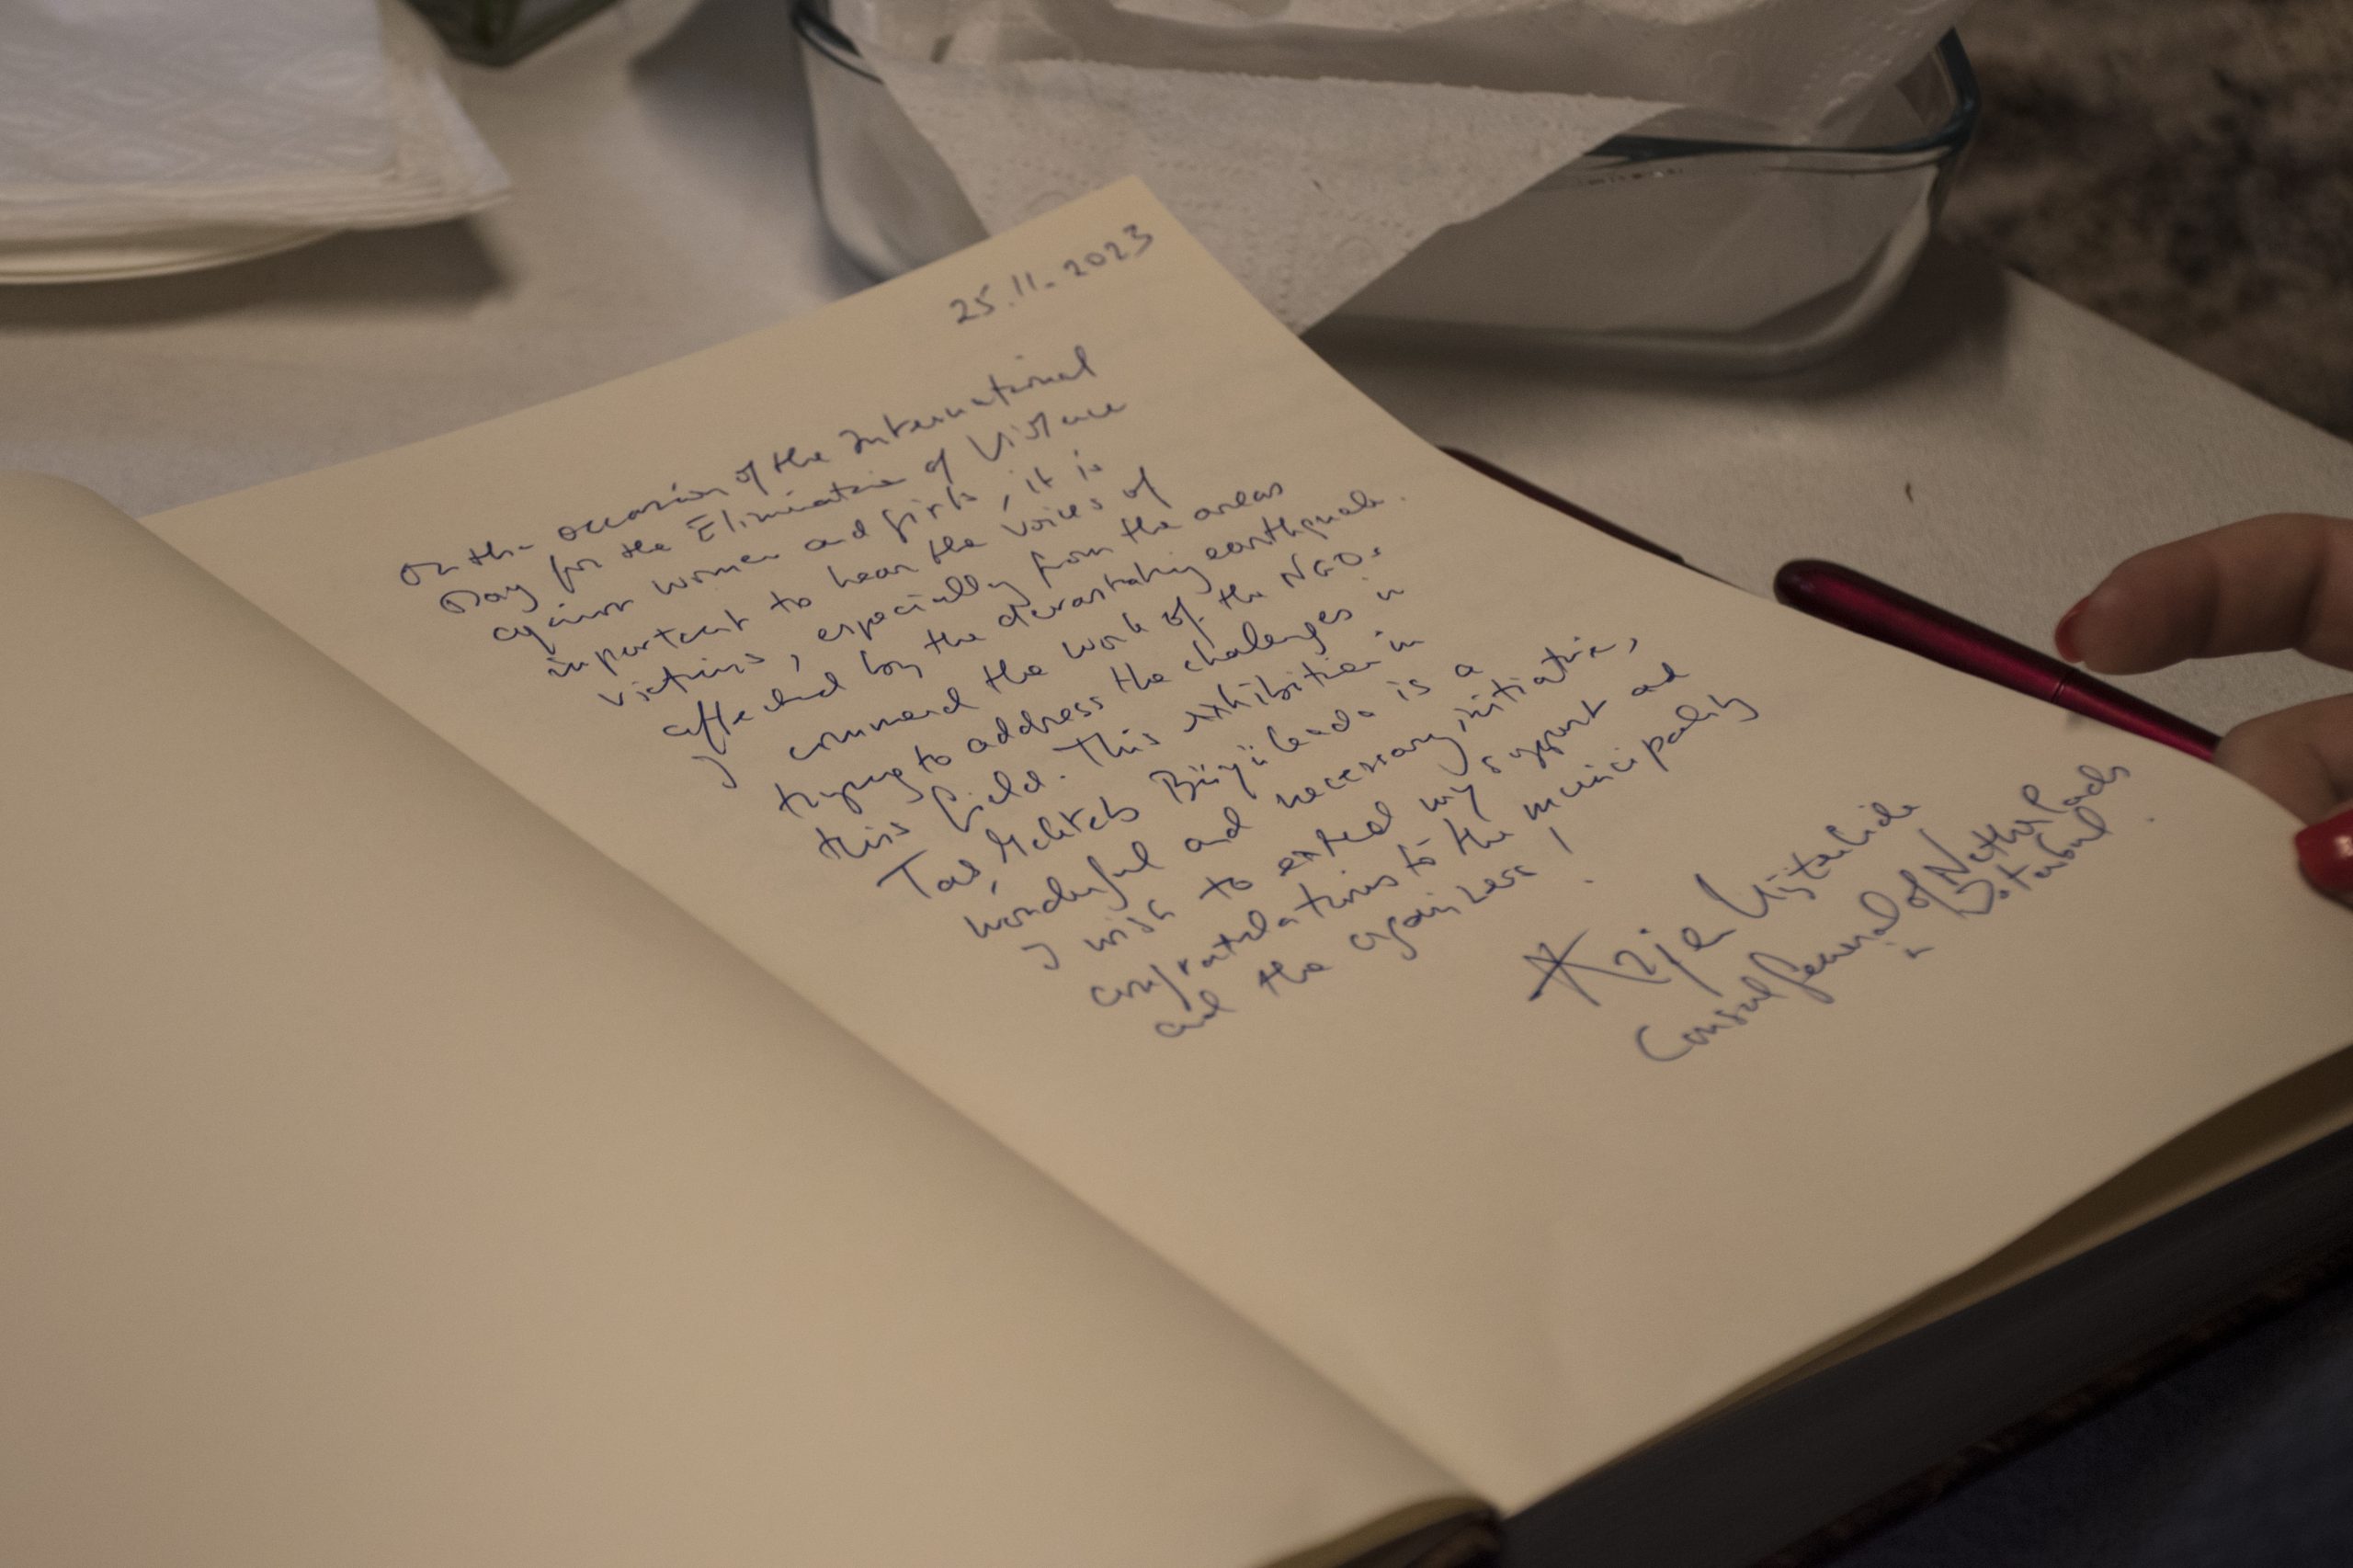 25.11.2023
On the occasion of the International
Day for the Elimination of Violence
against women and girls, it is
important to hear the voices of
victims, especially from the areas
affected by the devastating earthquake.
I commend the work of the NGOs
trying to address the challenges in
this field. This exhibition in
Taş Mektebi Büyükada is a
wonderful and necessary initiative,
I wish to extend my support and
congratulations to the municipality
and the organizers!
Arjen Uijterlinde
Consul General of Netherlands
in Istanbul.